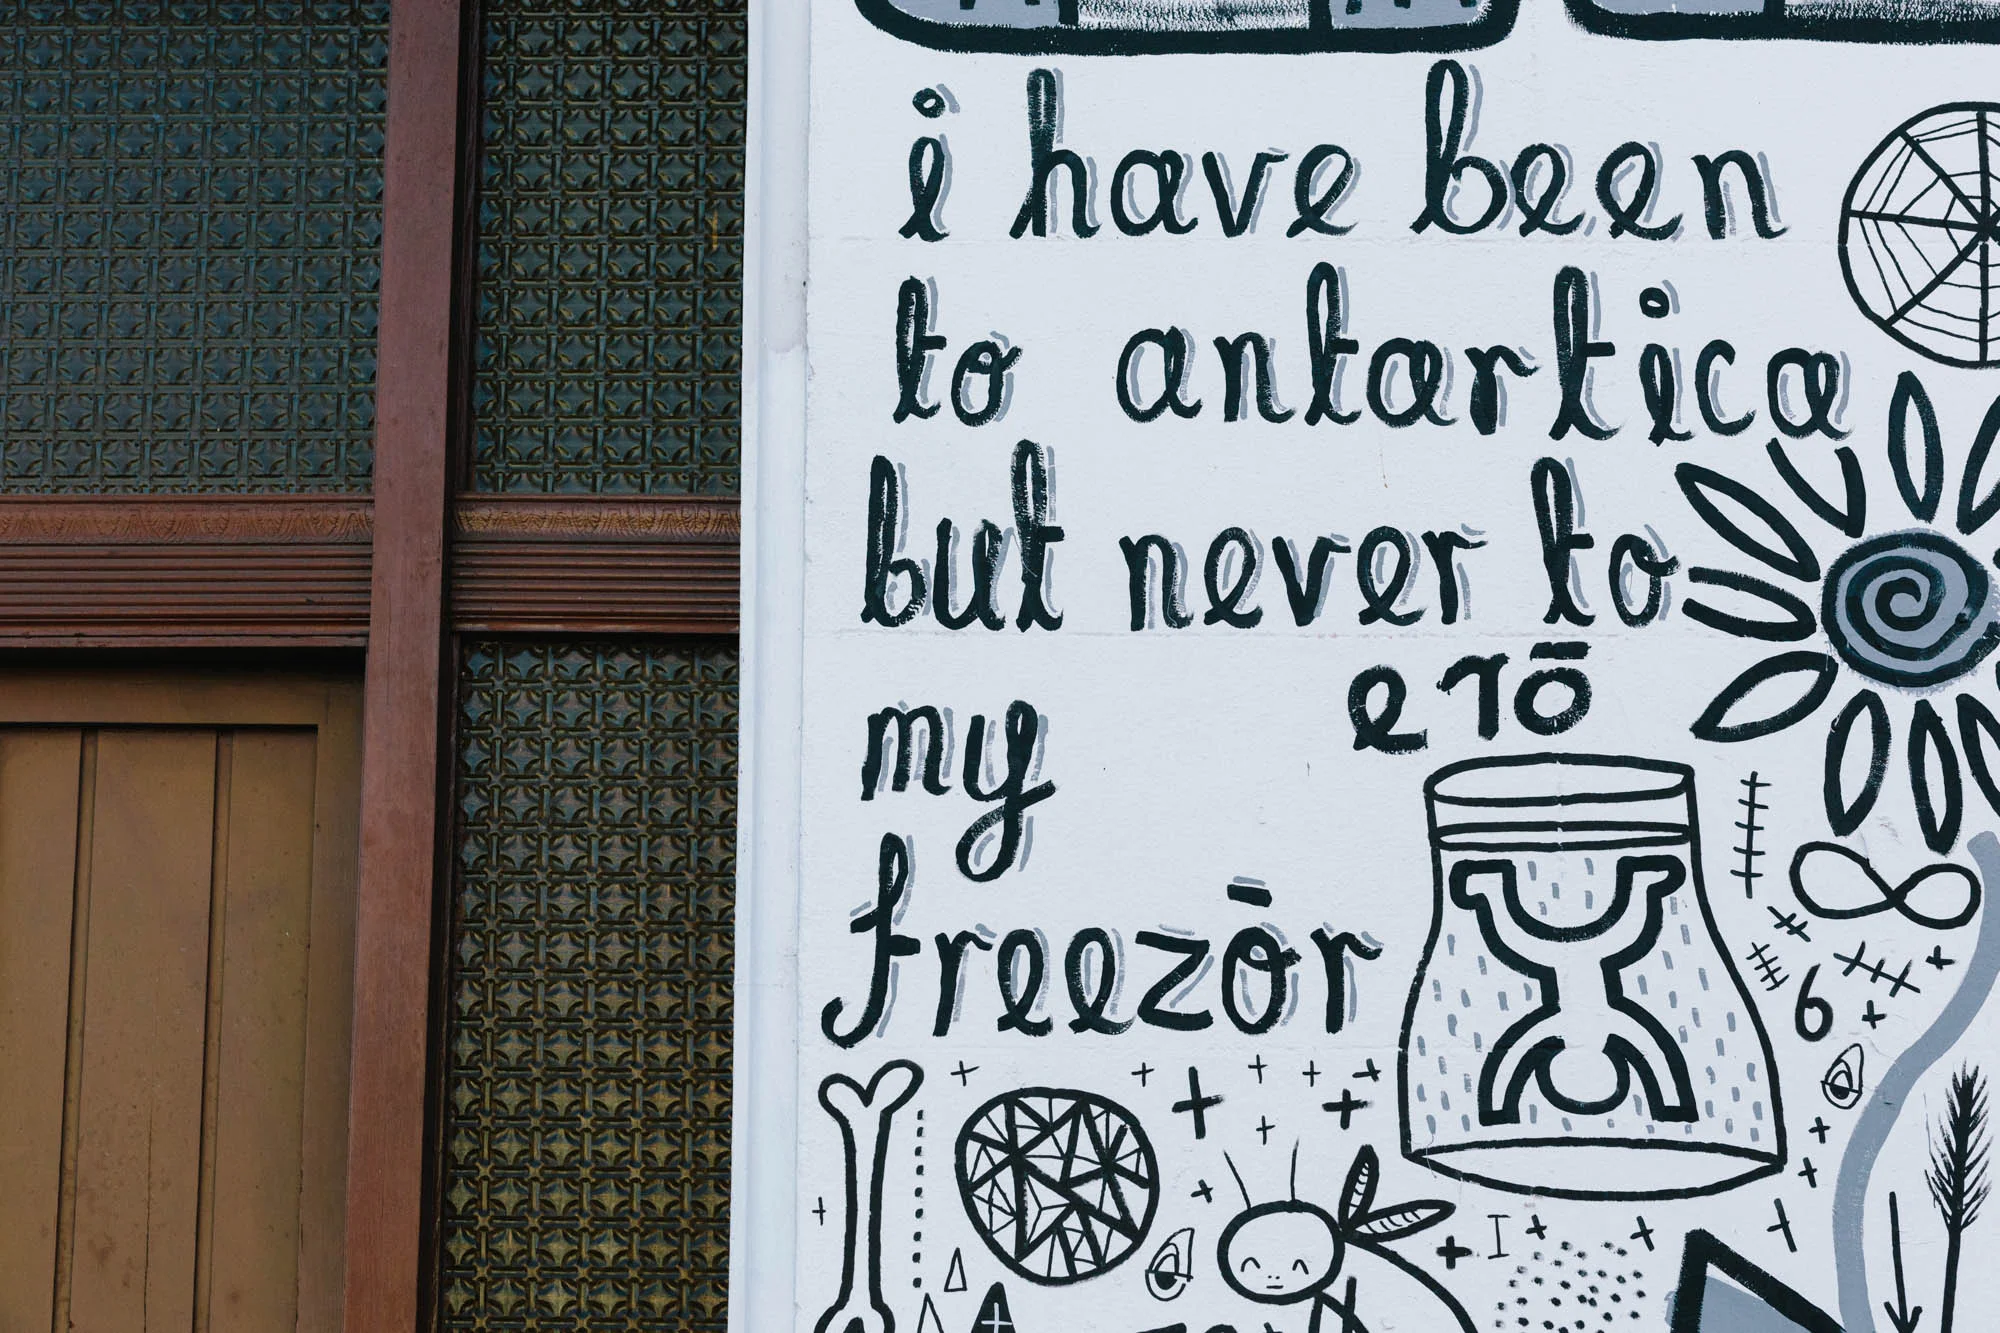 i have been
to antartica
but never to
my
erō
freezōr
6